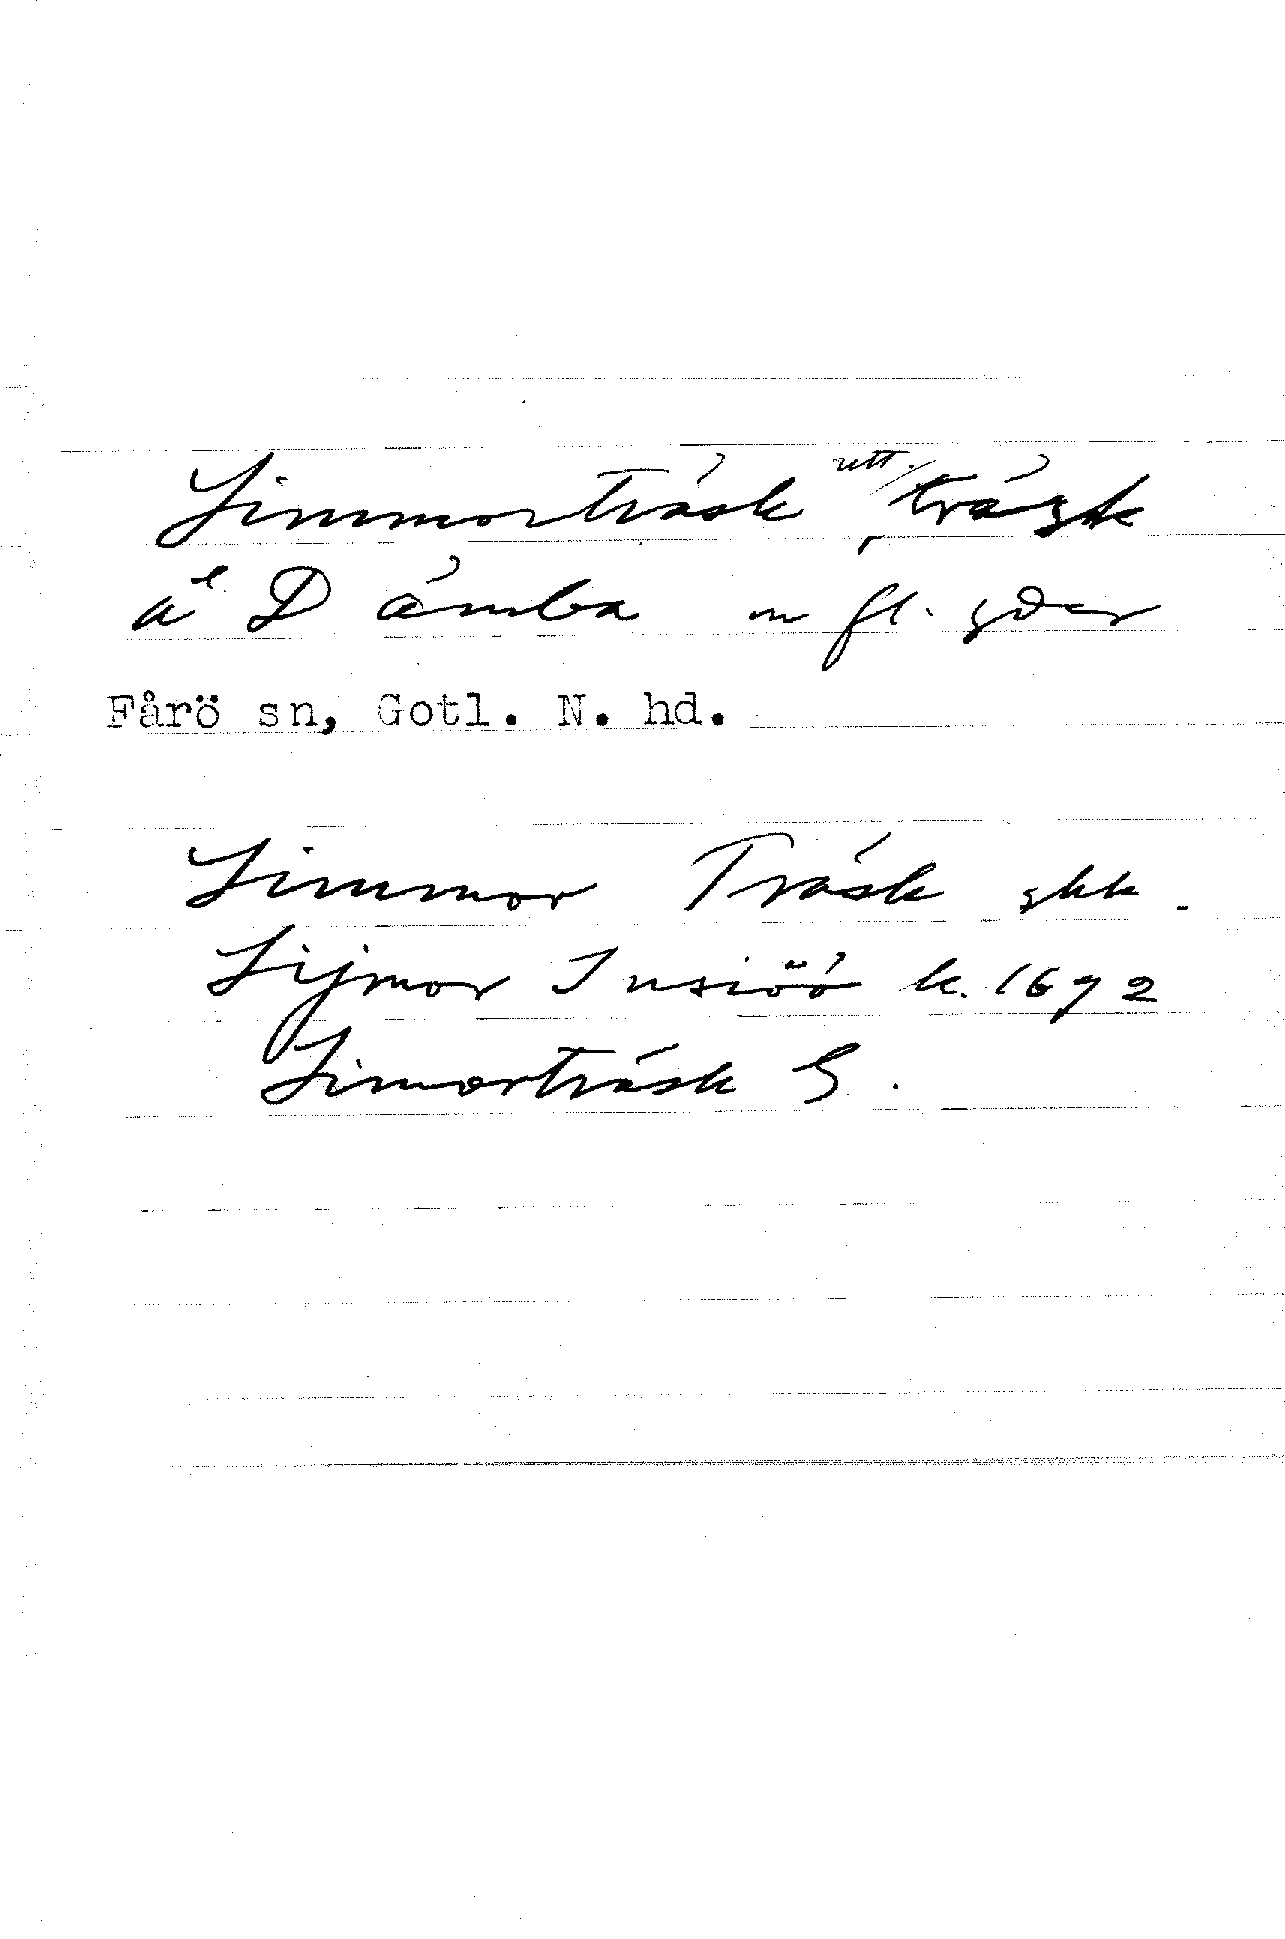 Limmorträsk utt. träsk
å Dämba m fl. gdar
Fårö sn, Gotl. N. hd.
Limmor Träsk gkk.
Lijmor Insiöö k. 1692
Limorträsk S.